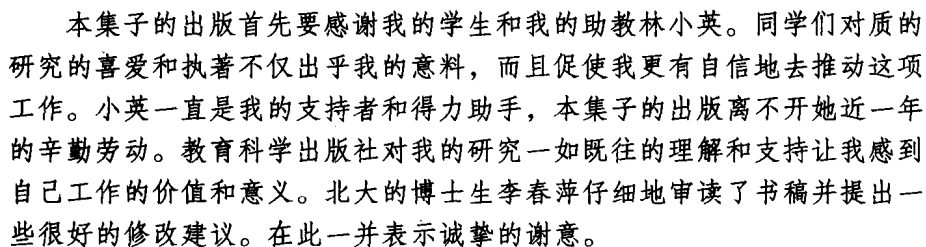 本集子的出版首先要感谢我的学生和我的助教林小英。同学们对质的
研究的喜爱和执著不仅出乎我的意料，而且促使我更有自信地去推动这项
工作。小英一直是我的支持者和得力助手，本集子的出版离不开她近一年
的辛勤劳动。教育科学出版社对我的研究一如既往的理解和支持让我感到
自己工作的价值和意义。北大的博士生李春萍仔细地审读了书稿并提出一
些很好的修改建议。在此一并表示诚挚的谢意。